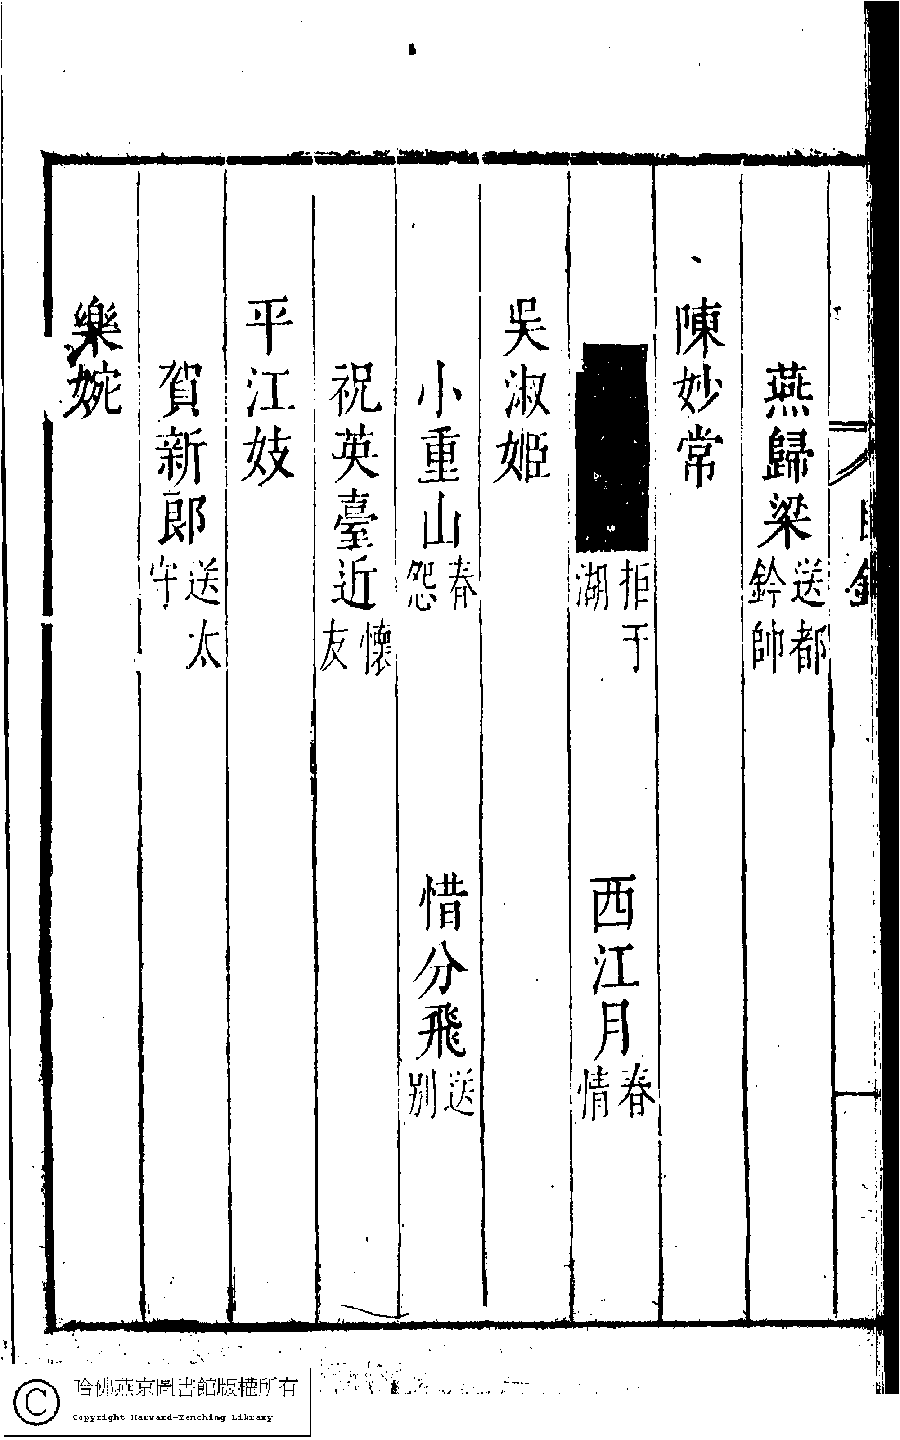 燕歸梁送都鈐帥
陳妙常
拒于湖 西江月春情
吳淑姬
小重山春怨 惜分飛送別
祝英臺近懷友
平江妓
賀新郎送太守
樂婉
哈佛燕京圖書館版權所有
Copyright Harvard-Yenching Library